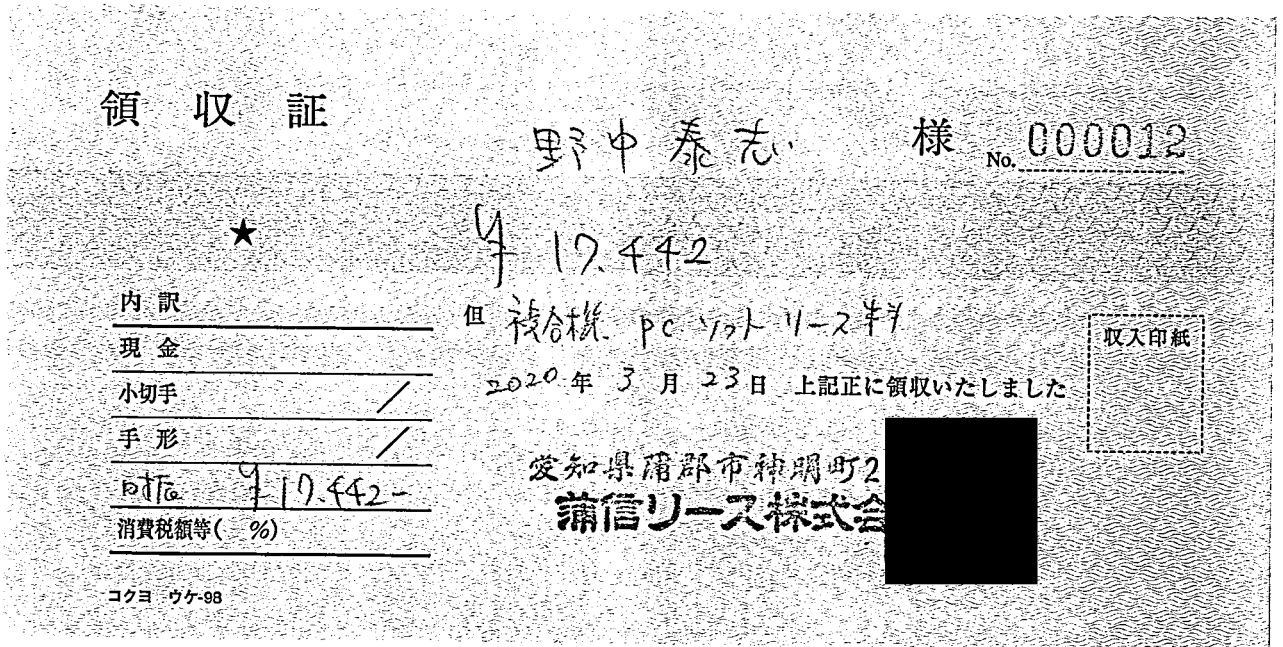 領収証
野中泰志 様 No. 000012
★
¥ 17.442
但 複合機. pc ソフト リース料
2020 年 3 月 23 日 上記正に領収いたしました
収入印紙
内訳
現金
小切手 /
手形 /
¥17.442-
消費税額等( %)
愛知県蒲郡市神明町2
蒲信リース株式会
コクヨ ウケ-98